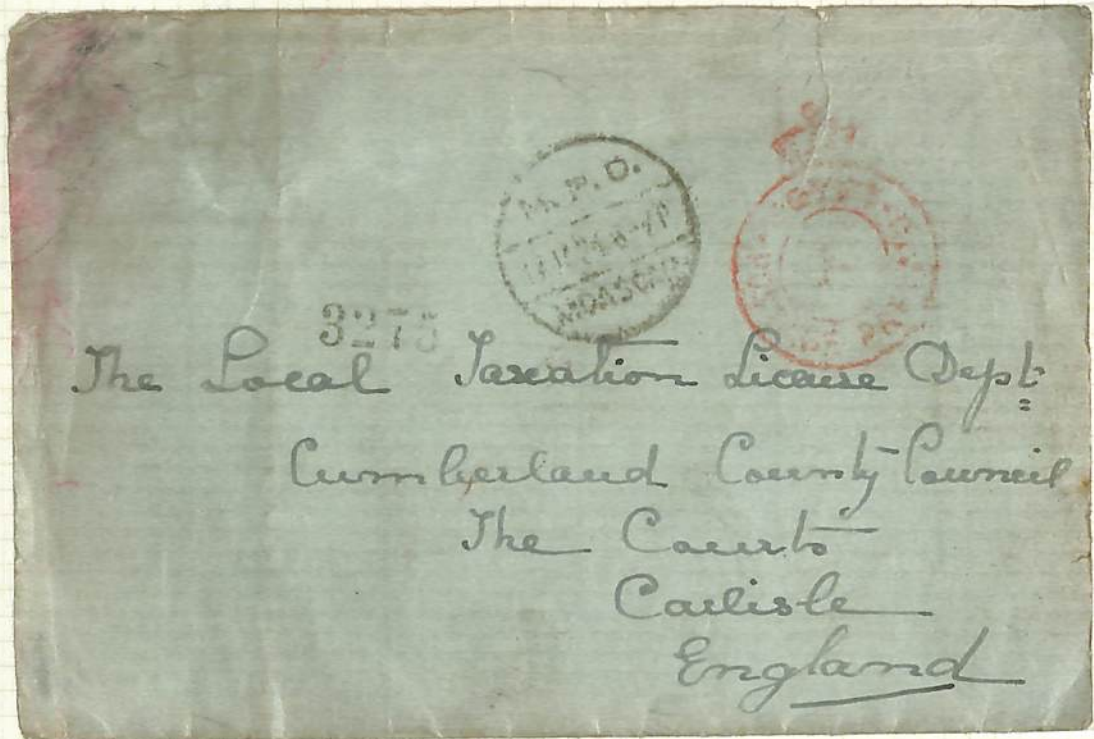 M.P.O.
MOASCAR
3275
The Local Taxation License Dept
Cumberland County Council
The Courts
Carlisle
England